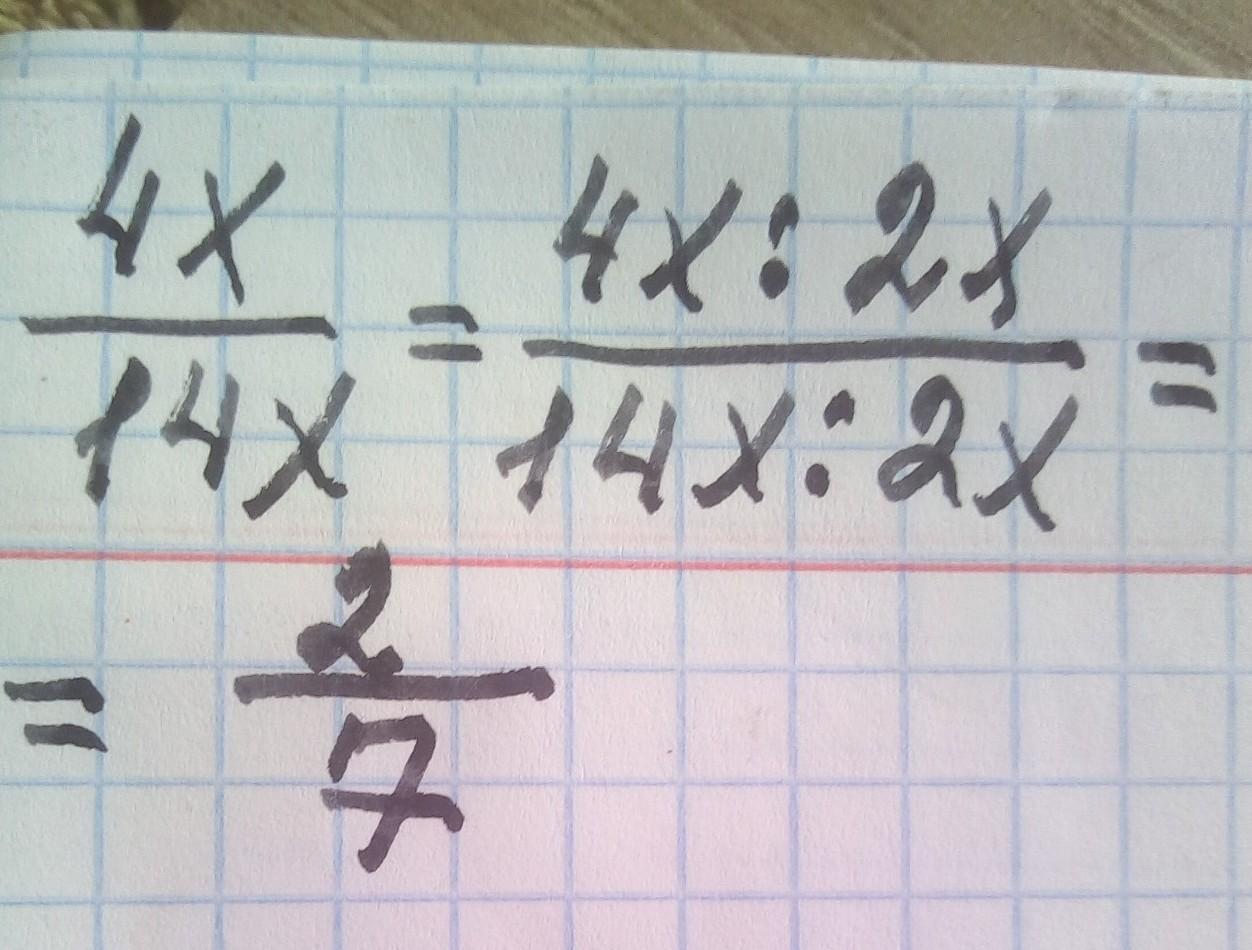 4x/14x = 4x:2x/14x:2x =
= 2/7